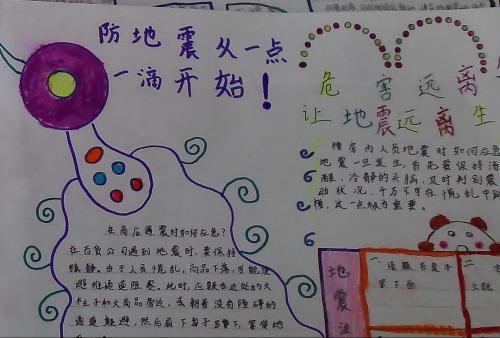 防地震从一点
一滴开始！
危害远离
让地震远离生
楼房内人员地震时如何应急
地震一旦发生，首先要保持清
醒、冷静的头脑，及时判别震
动状况，千万不可在慌乱中跳
楼，这一点极为重要。
在商店遇震时如何应急？
在百货公司遇到地震时，要保持
镇静。由于人员慌乱，商品下落，可能使
避难通道阻塞。此时，应躲在近处的大
柱子和大商品旁边，或朝着没有障碍的
通道躲避，然后屈下身子蹲下，等待地
地震注
一、
二